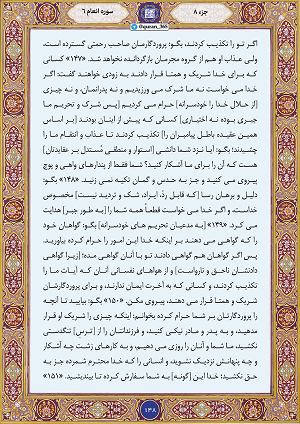 جزء ۸
@quran_365
سوره انعام ۶
اگر تو را تکذیب کردند، بگو: پروردگارتان صاحب رحمتی گسترده است،
ولی عذاب او هم از گروه مجرمان بازگردانده نخواهد شد. «۱۴۷» کسانی
که برای خدا شریک و همتا قرار دادند به زودی خواهند گفت: اگر
خدا می خواست نه ما شرک می ورزیدیم و نه پدرانمان، و نه چیزی
[از حلال خدا را خودسرانه] حرام می کردیم [پس شرک و تحریم ما
جبری بوده نه اختیاری] کسانی که پیش از اینان بودند [بر اساس
همین عقیده باطل پیامبران را] تکذیب کردند تا عذاب و انتقام ما را
چشیدند؛ بگو: آیا نزد شما دانشی [استوار و منطقی مُستدل بر عقایدتان]
هست که آن را برای ما آشکار کنید؟ شما فقط از پندارهای واهی و پوچ
پیروی می کنید و جز به حدس و گمان تکیه نمی زنید. «۱۴۸» بگو:
دلیل و برهان رسا [که قابل ردّ، ایراد، شک و تردید نیست] مخصوص
خداست، و اگر خدا می خواست قطعاً همه شما را [به طور جبر] هدایت
می کرد. «۱۴۹» [به مدعیان تحریم های خودسرانه] بگو: گواهان خود
را که گواهی می دهند بر اینکه خدا این امور را حرام کرده بیاورید.
پس اگر گواهان هم گواهی دادند تو با آنان گواهی مده؛ [زیرا گواهی
دادنشان ناحق و نارواست] و از هواهای نفسانی آنان که آیات ما را
تکذیب کردند، و کسانی که به آخرت ایمان ندارند، و برای پروردگارشان
شریک و همتا قرار می دهند، پیروی مکن. «۱۵۰» بگو: بیایید تا آنچه
را پروردگارتان بر شما حرام کرده بخوانم: اینکه چیزی را شریک او قرار
مدهید، و به پدر و مادر نیکی کنید، و فرزندانتان را از [ترس] تنگدستی
نکشید، ما شما و آنان را روزی می دهیم، و به کارهای زشت چه آشکار
و چه پنهانش نزدیک نشوید، و انسانی را که خدا محترم شمرده جز به
حق نکشید؛ خدا این [گونه] به شما سفارش کرده تا بیندیشید. «۱۵۱»
۱۴۸